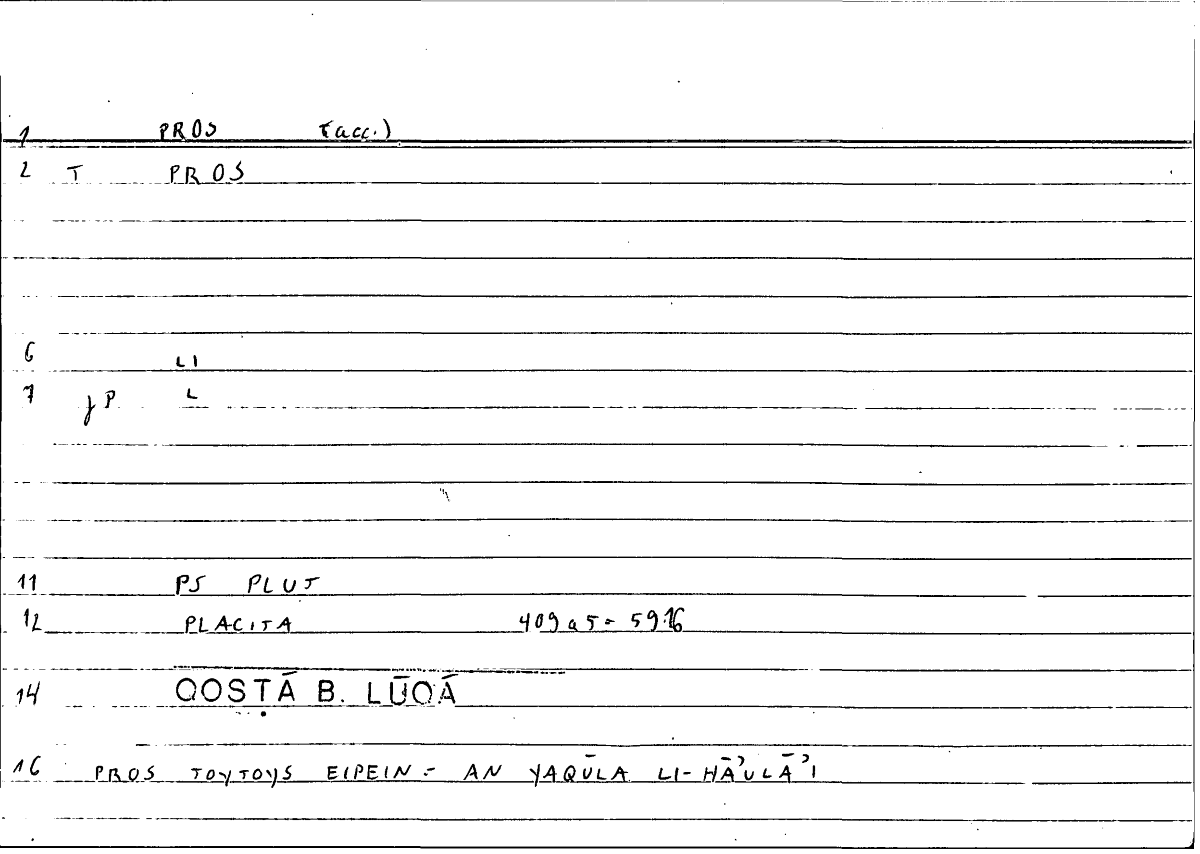 1 PROS (acc.)
2 T PROS
6 LI
7 jP L
11 PS PLUT
12 PLACITA 409 a 5 = 59.16
14 QOSṬĀ B. LŪQĀ
16 PROS TOYTOYS EIPEIN = AN YAQŪLA LI-HĀ'ULĀ'I